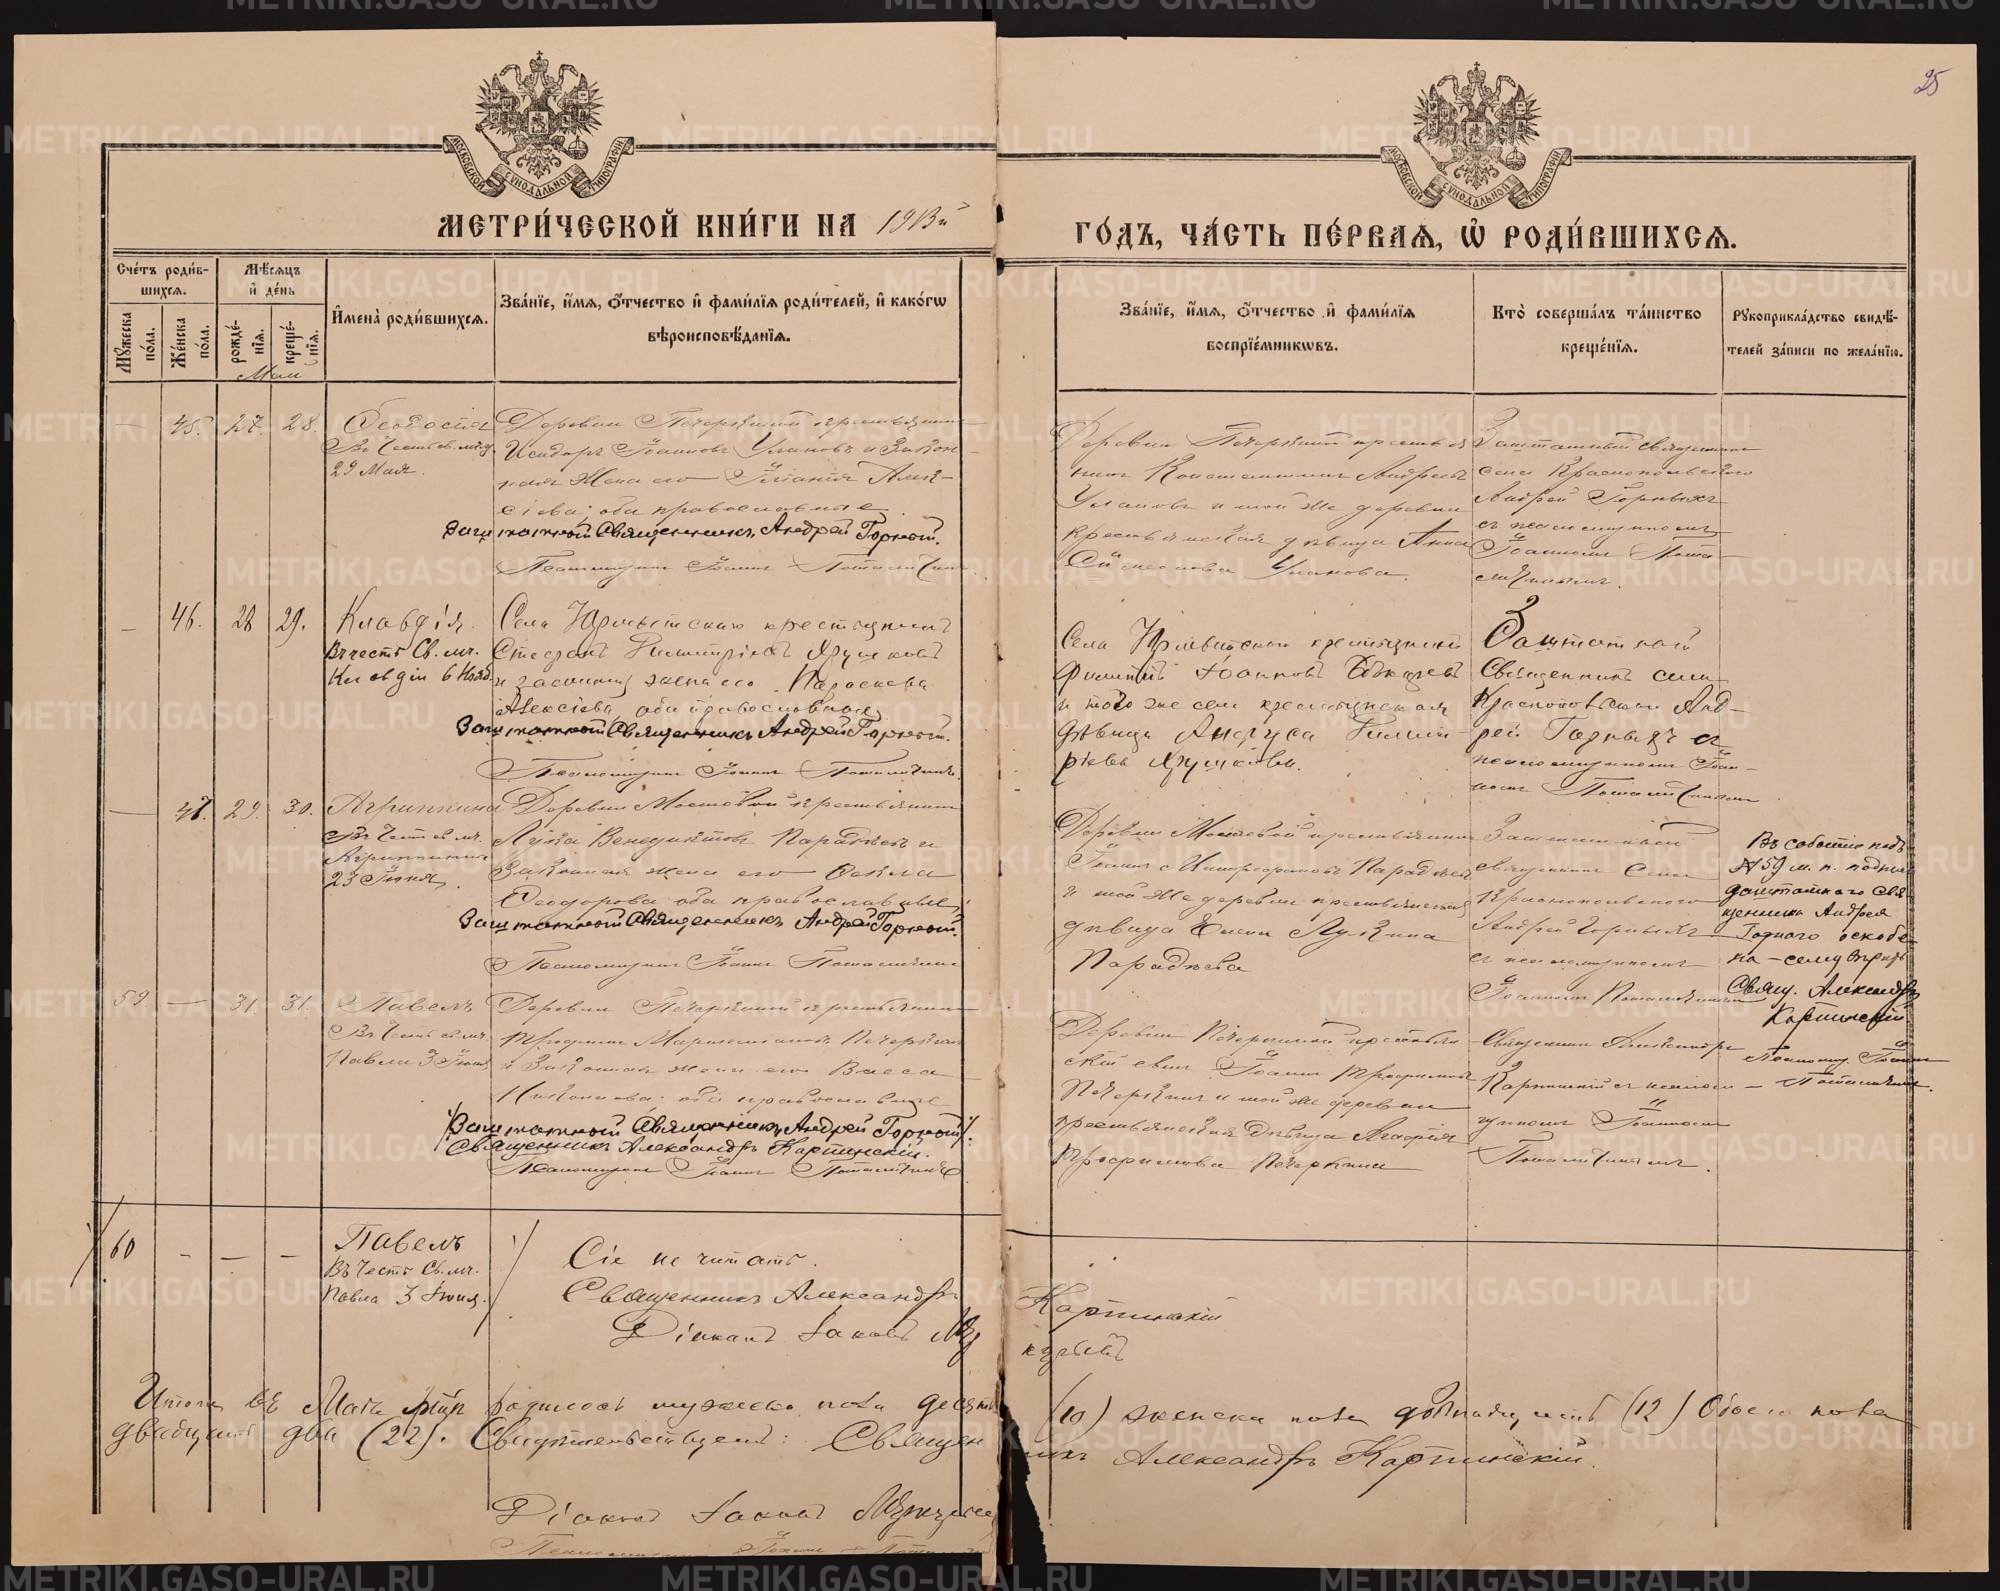 25
МОСКОВСКОЙ СѴНОДАЛЬНОЙ ТИПОГРАФІИ
МОСКОВСКОЙ СѴНОДАЛЬНОЙ ТИПОГРАФІИ
МЕТРИ́ЧЕСКОЙ КНИ́ГИ НА 1913й
ГО́ДЪ, ЧА́СТЬ ПЕ́РВАѦ, Ѡ҆ РОДИ́ВШИХСѦ.
Сче́тъ роди́в-
шихсѧ.
Мꙋ́жеска по́ла.
Же́нска по́ла.
Мѣ́сѧцъ
и҆ де́нь
рожде́-
нїѧ.
креще́-
нїѧ.
Май
И҆мена̀ роди́вшихсѧ.
Зва́нїе, и҆́мѧ, о҆́тчество и҆ фами́лїѧ роди́телей, и҆ како́гѡ
вѣроисповѣ́данїѧ.
Зва́нїе, и҆́мѧ, о҆́тчество и҆ фами́лїѧ
воспрїе́мникѡвъ.
Кто̀ соверша́лъ та́инство
креще́нїѧ.
Рꙋкоприкла́дство свидѣ́-
телей за́писи по жела́нїю.
— 45. 27. 28. Ѳеодосія
Въ честь св. мч.
29 Мая.
Деревни Печеркиной крестьянинъ
Исидоръ Іоанновъ Улановъ и закон-
ная жена его Алек-
сіева, оба православные
Заштатный Священникъ Андрей Горный.
Псаломщикъ Іоаннъ Поталицинъ
Деревни Печеркиной крестья-
нинъ Константинъ Андреевъ
Улановъ и той же деревни
крестьянская дѣвица Анна
Симеонова Уланова.
Заштатный священникъ
села Краснопольскаго
Андрей Горныхъ
съ псаломщикомъ
Іоанномъ Пота-
лицинымъ.
— 46. 28 29. Клавдія.
Въ честь Св. мч.
Клавдіи 6 Нояб.
Села Юрмытскаго крестьянинъ
Стефанъ Димитріевъ Хрушковъ
и законная жена его Параскева
Алексіева, оба православные
Заштатный Священникъ Андрей Горный.
Псаломщикъ Іоаннъ Поталицинъ.
Села Юрмытскаго крестьянинъ
Филиппъ Іоанновъ
и того же села крестьянская
дѣвица Анфуса Димит-
ріева Хрушкова.
Заштатный
Священникъ села
Краснопольскаго Анд-
рей Горныхъ съ
псаломщикомъ Іоан-
номъ Поталицинымъ
— 47. 29. 30. Агриппина
Въ честь св. мч.
Агриппины
23 Іюня.
Деревни Мостовой крестьянинъ
Лука Венедиктовъ Парадѣевъ и
законная жена его Ѳекла
Ѳеодорова, оба православные
Заштатный Священникъ Андрей Горный.
Псаломщикъ Іоаннъ Поталицинъ
Деревни Мостовой крестьянинъ
Іоаннъ Митрофановъ Парадѣевъ
и той же деревни крестьянская
дѣвица Елена Лукина
Парадѣева
Заштатный
священникъ села
Краснопольскаго
Андрей Горныхъ
съ псаломщикомъ
Іоанномъ Поталицинымъ
Въ событіи подъ
№ 59 м. п. подпись
заштатнаго Свя-
щенника Андрея
Горнаго оскобле-
на — сему вѣрить
Свящ. Александръ
Карпинскій.
Псаломщ. Іоаннъ
Поталицинъ.
59 — 31 31. Павелъ
Въ честь св. мч.
Павла 3 Іюня
Деревни Печеркиной крестьянинъ
Трофимъ Печеркинъ
и законная жена его Васса
оба православные
/Заштатный Священникъ Андрей Горный/.
Священникъ Александръ Карпинскій.
Псаломщикъ Іоаннъ Поталицинъ
Деревни Печеркиной крестьян-
скій сынъ Іоаннъ Трофимовъ
Печеркинъ и той же деревни
крестьянская дѣвица Агафія
Трофимова Печеркина
Священникъ Александръ
Карпинскій съ псалом-
щикомъ Іоанномъ
Поталицинымъ.
/60 — — — Павелъ /
Въ честь Св. мч.
Павла 3 Іюня.
Сіе не читать.
Священникъ Александръ Карпинскій
Діаконъ Іаковъ
Итого въ Маѣ м-цѣ родилось мужеска пола десять (10) женска пола двѣнадцать (12) Обоего пола
двадцать два (22). Свидѣтельствуемъ: Священникъ Александръ Карпинскій.
Діаконъ Іаковъ
Псаломщикъ Іоаннъ
METRIKI.GASO-URAL.RU